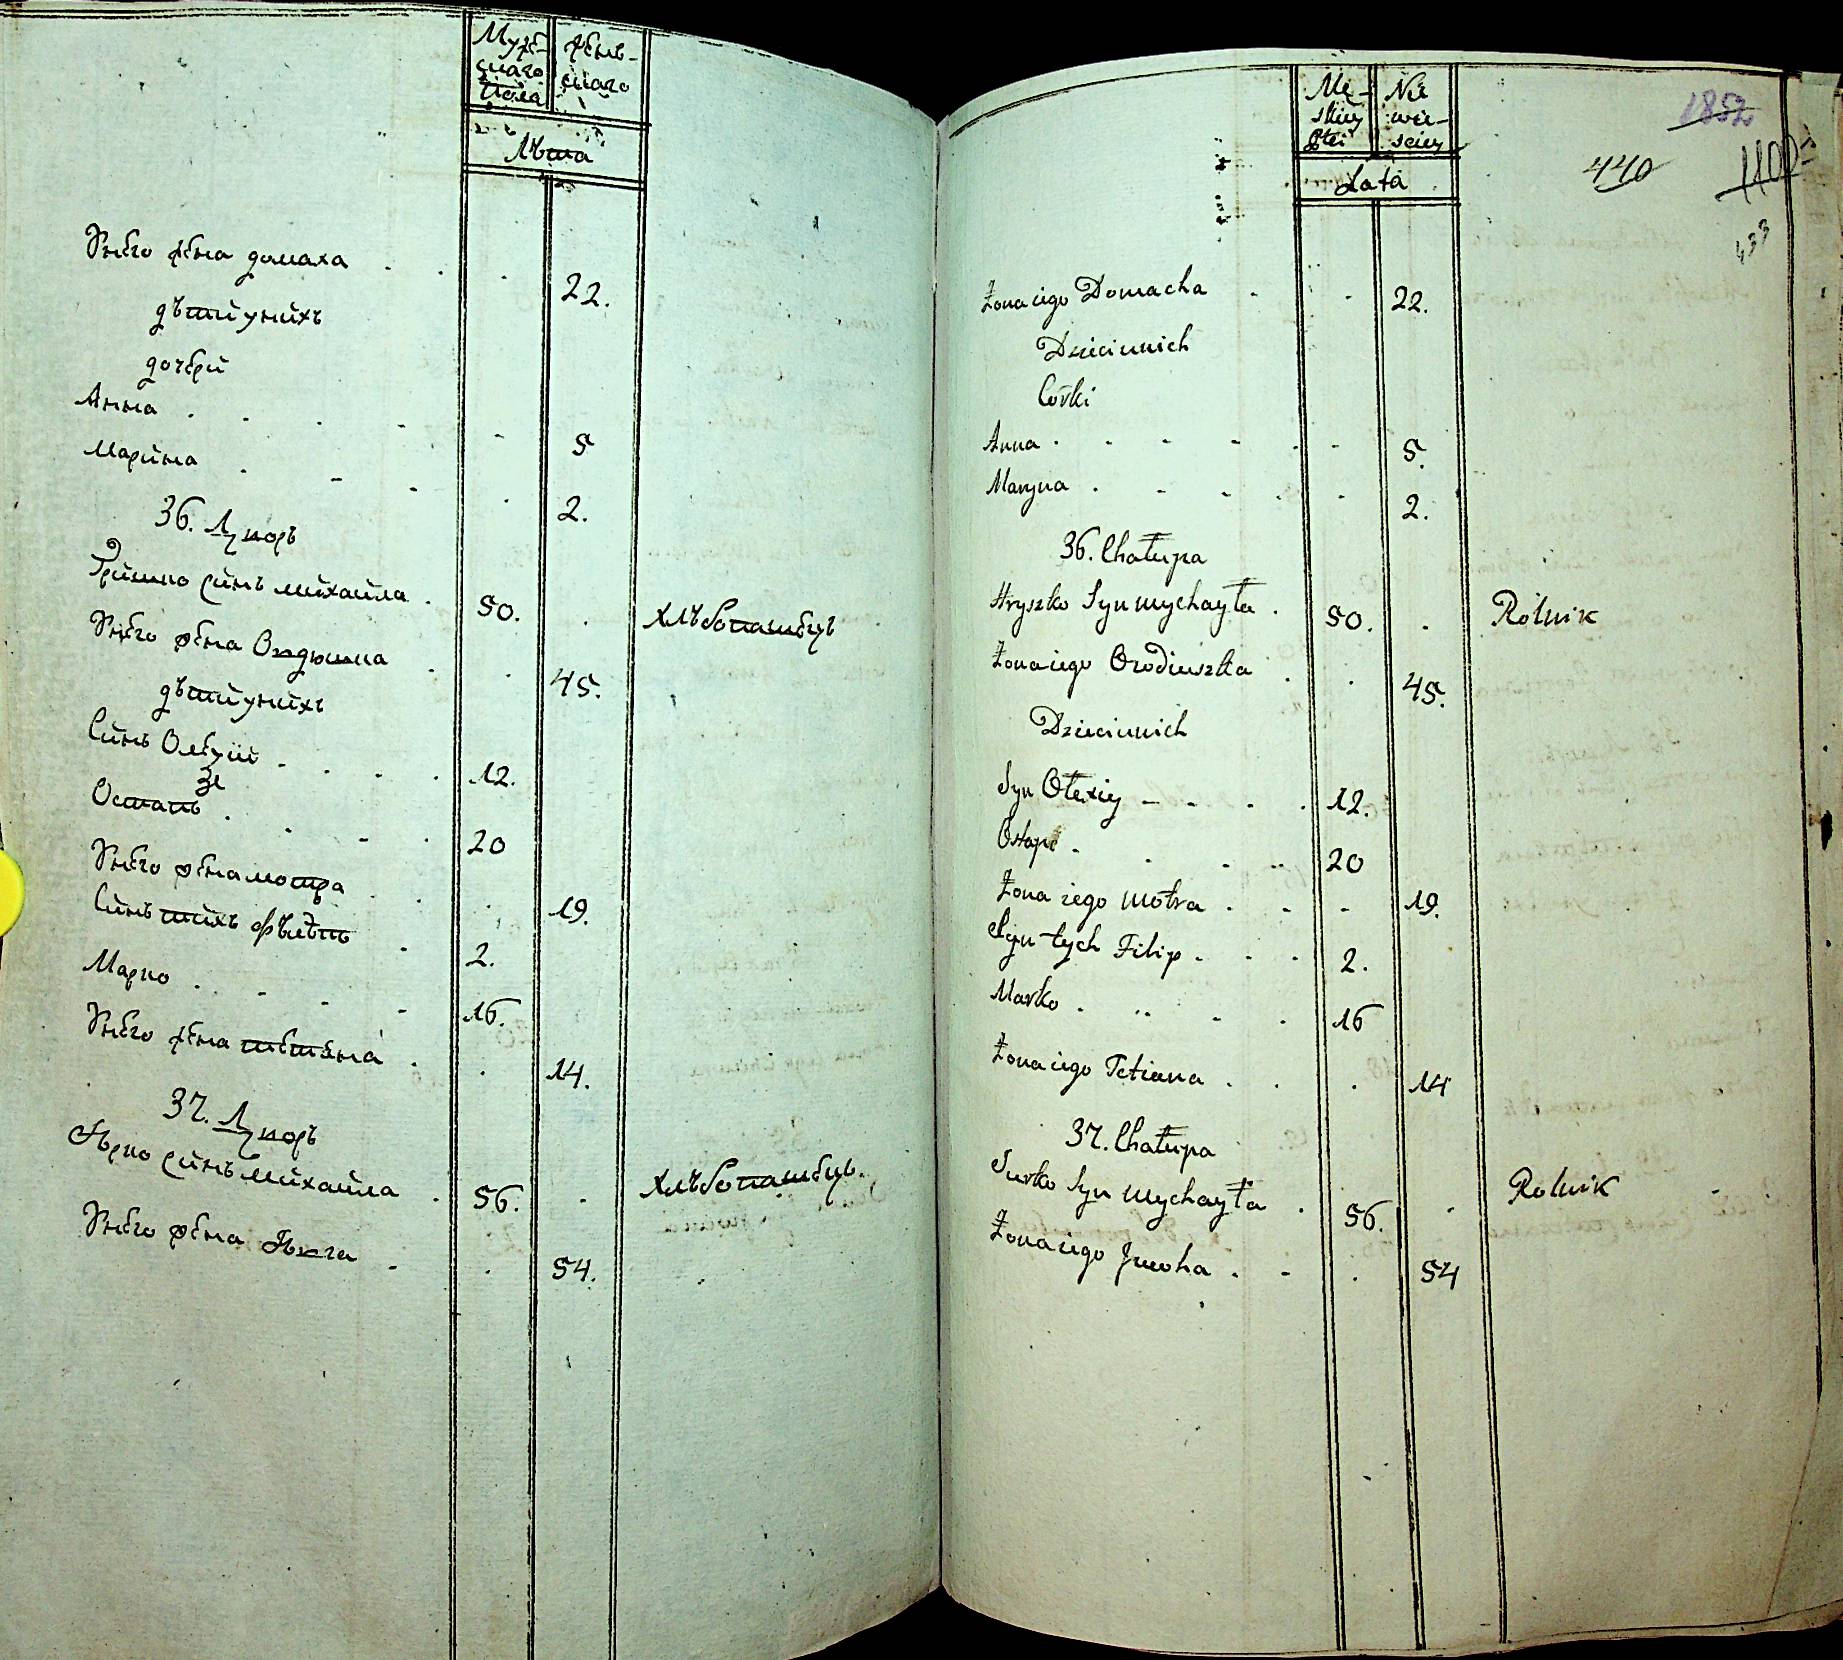 Мужескаго пола
женскаго
лѣта
Унего жена домаха . . . 22.
дѣти унихъ
дочери
Анна . . . . - 5
Марина . - - . 2.
36. Дворъ
Гришко синъ михайла . 50. . хлѣбопашецъ
Унего жена Овдюшка . . 45.
дѣти унихъ
Синъ Олексий - . . . 12.
Остапъ . . - . 20
Унего жена мотра . . . 19.
Синъ тихъ Филипъ . 2.
Марко . - . - 16.
Унего жена тетяна . . 14.
37. Дворъ
Юрко синъ михайла . 56. . хлѣбопашецъ.
Унего жена Явга - . 54.
Mę-
skiey
płci
Nie
wie-
sciey
Lata
1852
440
1100
433
Żona iego Domacha . - 22.
Dzieci u nich
Córki
Anna . - - - . - 5.
Maryna . - - . - 2.
36. Chałupa
Hryszko Syn mychayła . 50. . Rolnik
Żona iego Owdiuszka . . 45.
Dzieci u nich
Syn Ołexiy - - . . 12.
Ostap . . - - 20
Żona iego motra . - - 19.
Syn tych Filip . - . 2.
Marko . .. - . 16
Żona iego Tetiana . . . 14
37. Chałupa
Jurko Syn mychayła . 56. . Rolnik
Żona iego Jewha . - . 54